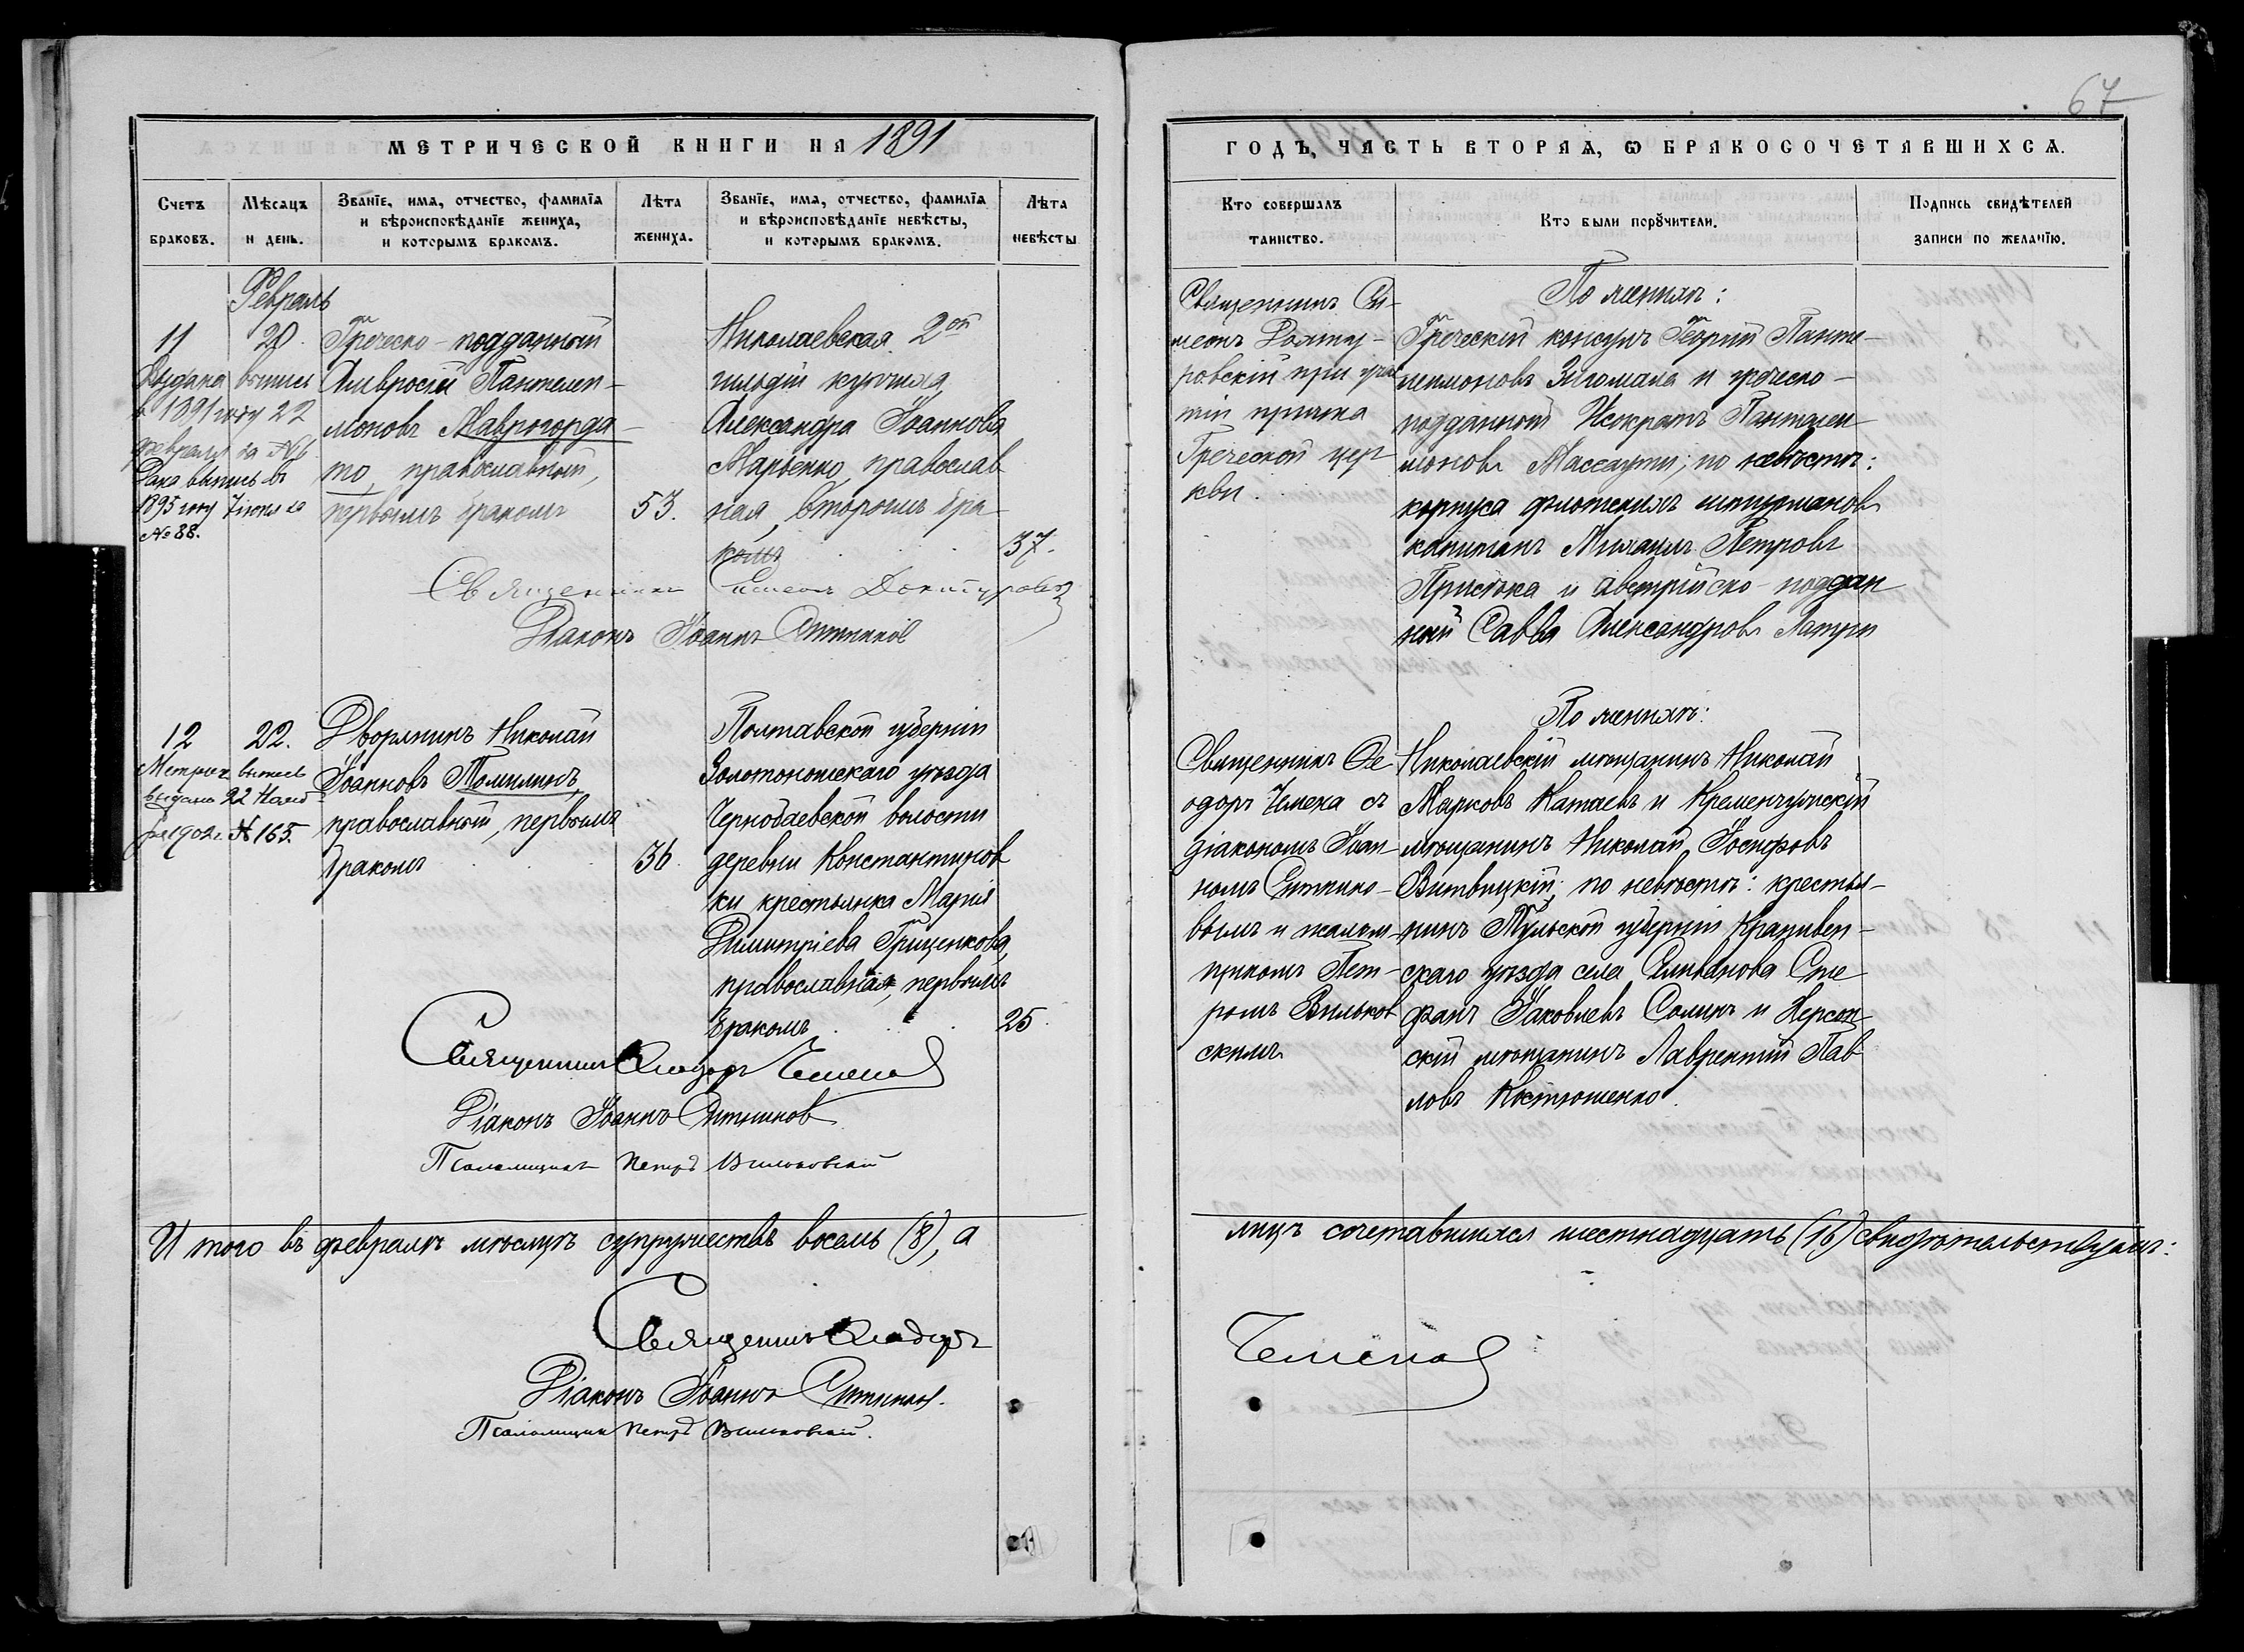 67
МЕТРИЧЕСКОЙ КНИГИ НА 1891
Счетъ браковъ.
Мѣсяцъ и день.
Званіе, имя, отчество, фамилія
и вѣроисповѣданіе жениха,
и которымъ бракомъ.
Лѣта жениха.
Званіе, имя, отчество, фамилія
и вѣроисповѣданіе невѣсты,
и которымъ бракомъ.
Лѣта невѣсты
Февраль
11
20.
Выдана выпись
в 1891 году 22
февраля за № 6
Дана выпись въ
1895 году 7 іюля за
№ 88.
Греческо-подданный
Амвросій Пантелеи-
моновъ Маврогорда-
то, православный,
первымъ бракомъ
53.
Николаевская 2ой
гильдіи купчиха
Александра Іоаннова
Марьенко, православ
ная, вторымъ бра
комъ
37.
Священникъ Симеонъ
Діаконъ Іоаннъ Ситников
12
22.
Метрич. выпись
выдана 22 Нояб-
ря 1902 г. № 165.
Дворянинъ Николай
Іоанновъ Томилинъ,
православный, первымъ
бракомъ
36.
Полтавской губерніи
Золотоношскаго уѣзда
Чернобаевской волости
деревни Константинов
ки крестьянка Марія
Димитріева Гриценкова,
православная, первымъ
бракомъ
25.
Священникъ Ѳеодоръ Чемена
Діаконъ Іоаннъ Ситников
Псаломщикъ Петръ Вильковскій
Итого въ февралѣ мѣсяцѣ супружествъ восемь (8), а
Священникъ Ѳеодоръ
Діаконъ Іоаннъ Ситников.
Псаломщикъ Петръ Вильковскій.
ГОДЪ, ЧАСТЬ ВТОРАЯ, Ѡ БРАКОСОЧЕТАВШИХСЯ.
Кто совершалъ
таинство.
Кто были поручители.
Подпись свидѣтелей
записи по желанію.
Священникъ Си-
меонъ
ровскій при учас
тіи причта
Греческой цер
кви.
По женихѣ:
Греческій консулъ Георгій Панте-
леимоновъ Зигомала и греческо-
подданный Исократъ Пантелеи
моновъ ; по невѣстѣ:
корпуса флотскихъ штурмановъ
капитанъ Михаилъ Петровъ
и австрійско-поддан
ный Савва Александровъ
По женихѣ:
Священникъ Ѳе
одоръ Чемена съ
діакономъ Іоан-
номъ Ситнико-
вымъ и псалом-
щикомъ Пет-
ромъ Вильков
скимъ
Николаевскій мѣщанинъ Николай
Марковъ Катаевъ и Кременчугскій
мѣщанинъ Николай Іосифовъ
Витвицкій; по невѣстѣ: крестья-
нинъ Тульской губерніи Крапивен-
скаго уѣзда села Сте
фанъ Іаковлевъ Солинъ и Херсон
скій мѣщанинъ Лаврентій Пав
ловъ Костюшенко.
лицъ сочетавшихся шестнадцать (16) свидѣтельствуемъ:
Чемена